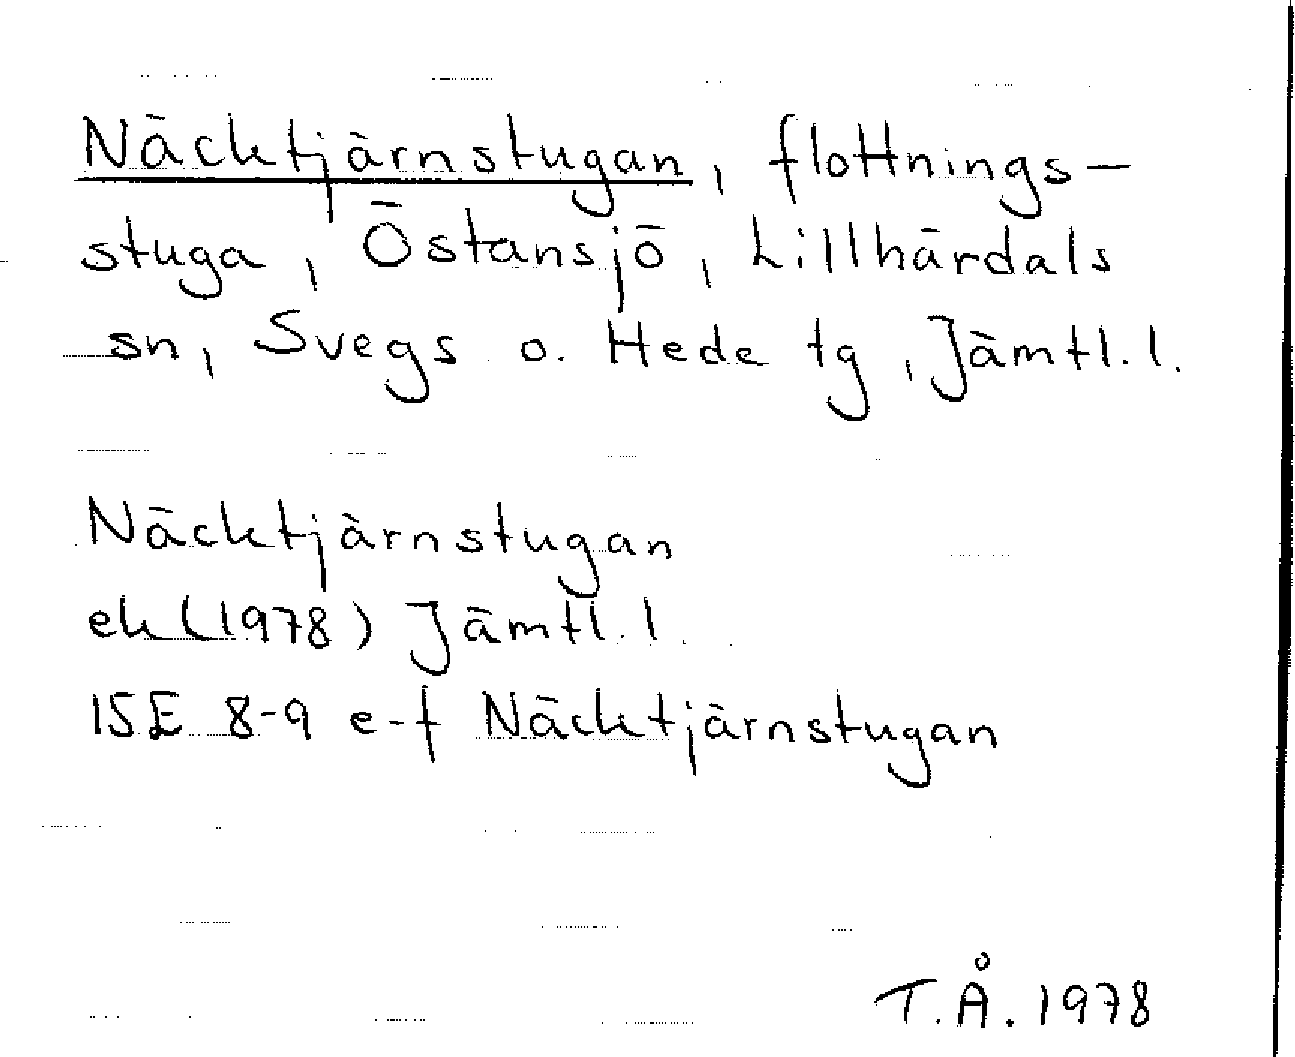 Näcktjärnstugan, flottnings-
stuga, Östansjö, Lillhärdals
sn, Svegs o. Hede tg, Jämtl. l.
Näcktjärnstugan
ek (1978) Jämtl. l.
15E 8-9 e-f Näcktjärnstugan
T.Å. 1978